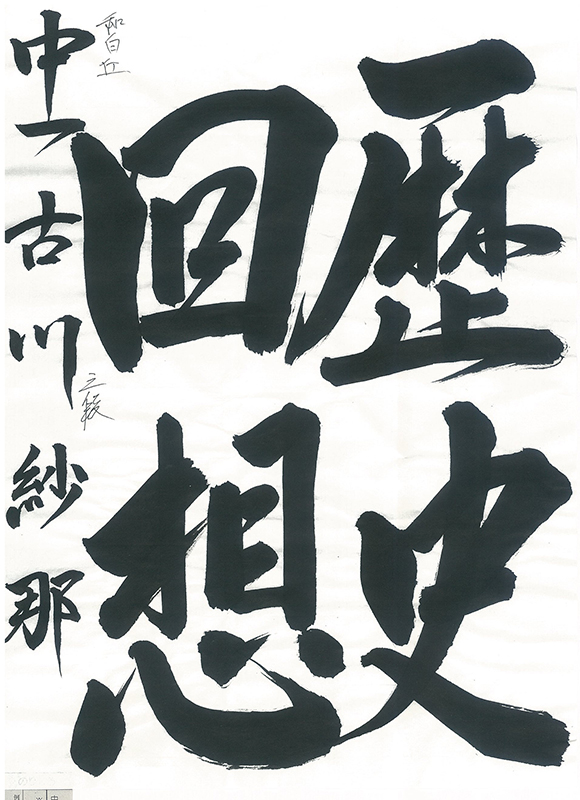 歴史
回想
中一 古川 紗那
和白丘
三段